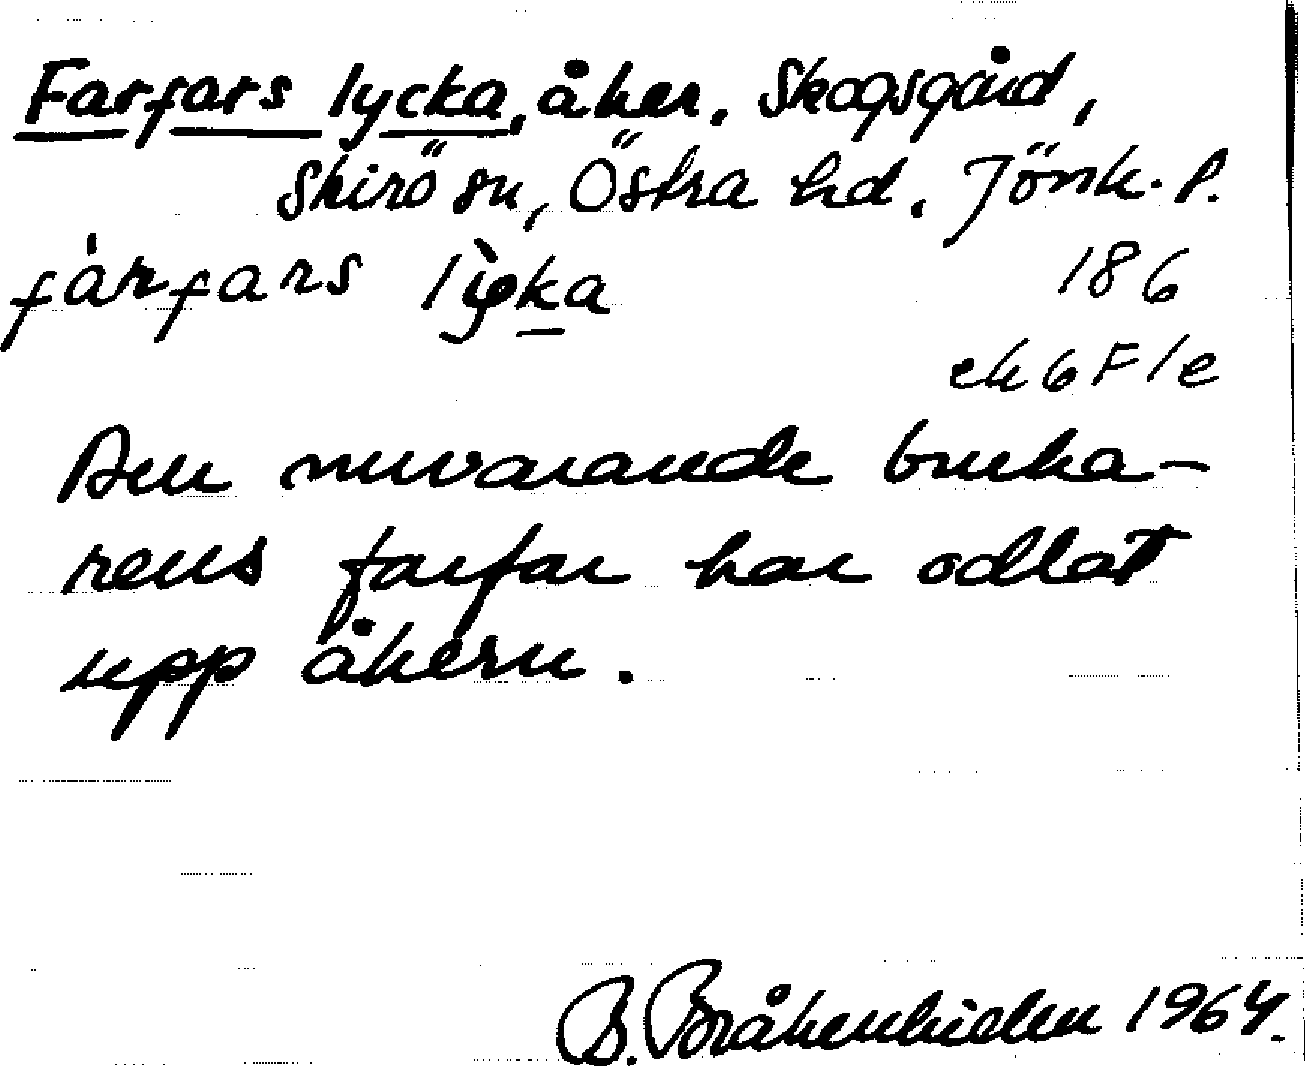 Farfars lycka, åker. Skogsgård,
Skirö sn, Östra hd. Jönk. l.
fàrfars lỳka 186
ek 6 F 1 e
Den nuvarande bruka-
rens farfar har odlat
upp åkern.
B. Bråkenhielm 1964.